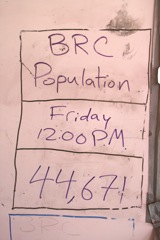 BRC
Population
Friday
12:00 P.M.
44,671